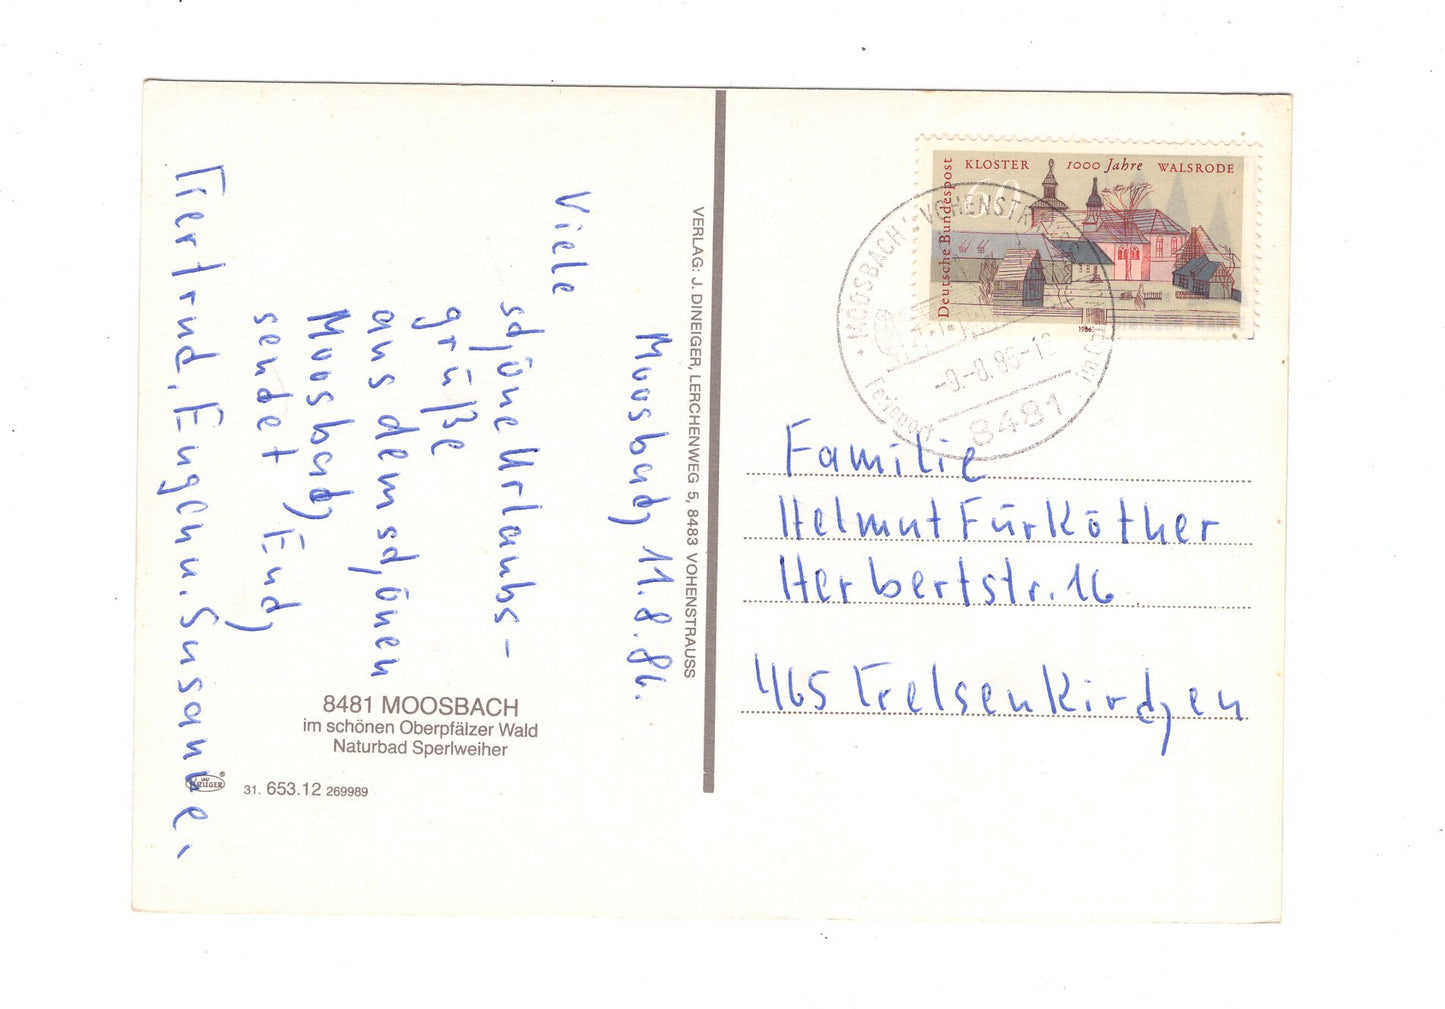 Moosbach, 11.8.86.
Viele
schöne Urlaubs-
grüße
aus dem schönen
Moosbach
sendet Euch
Gertrud, Eugen u. Susanne.
8481 MOOSBACH
im schönen Oberpfälzer Wald
Naturbad Sperlweiher
KRÜGER
31. 653.12 269989
VERLAG: J. DINEIGER, LERCHENWEG 5, 8483 VOHENSTRAUSS
KLOSTER 1000 Jahre WALSRODE
Deutsche Bundespost
60
1986
MOOSBACH
8481
Ferienort
Familie
Helmut Fürköther
Herbertstr. 16
465 Gelsenkirchen